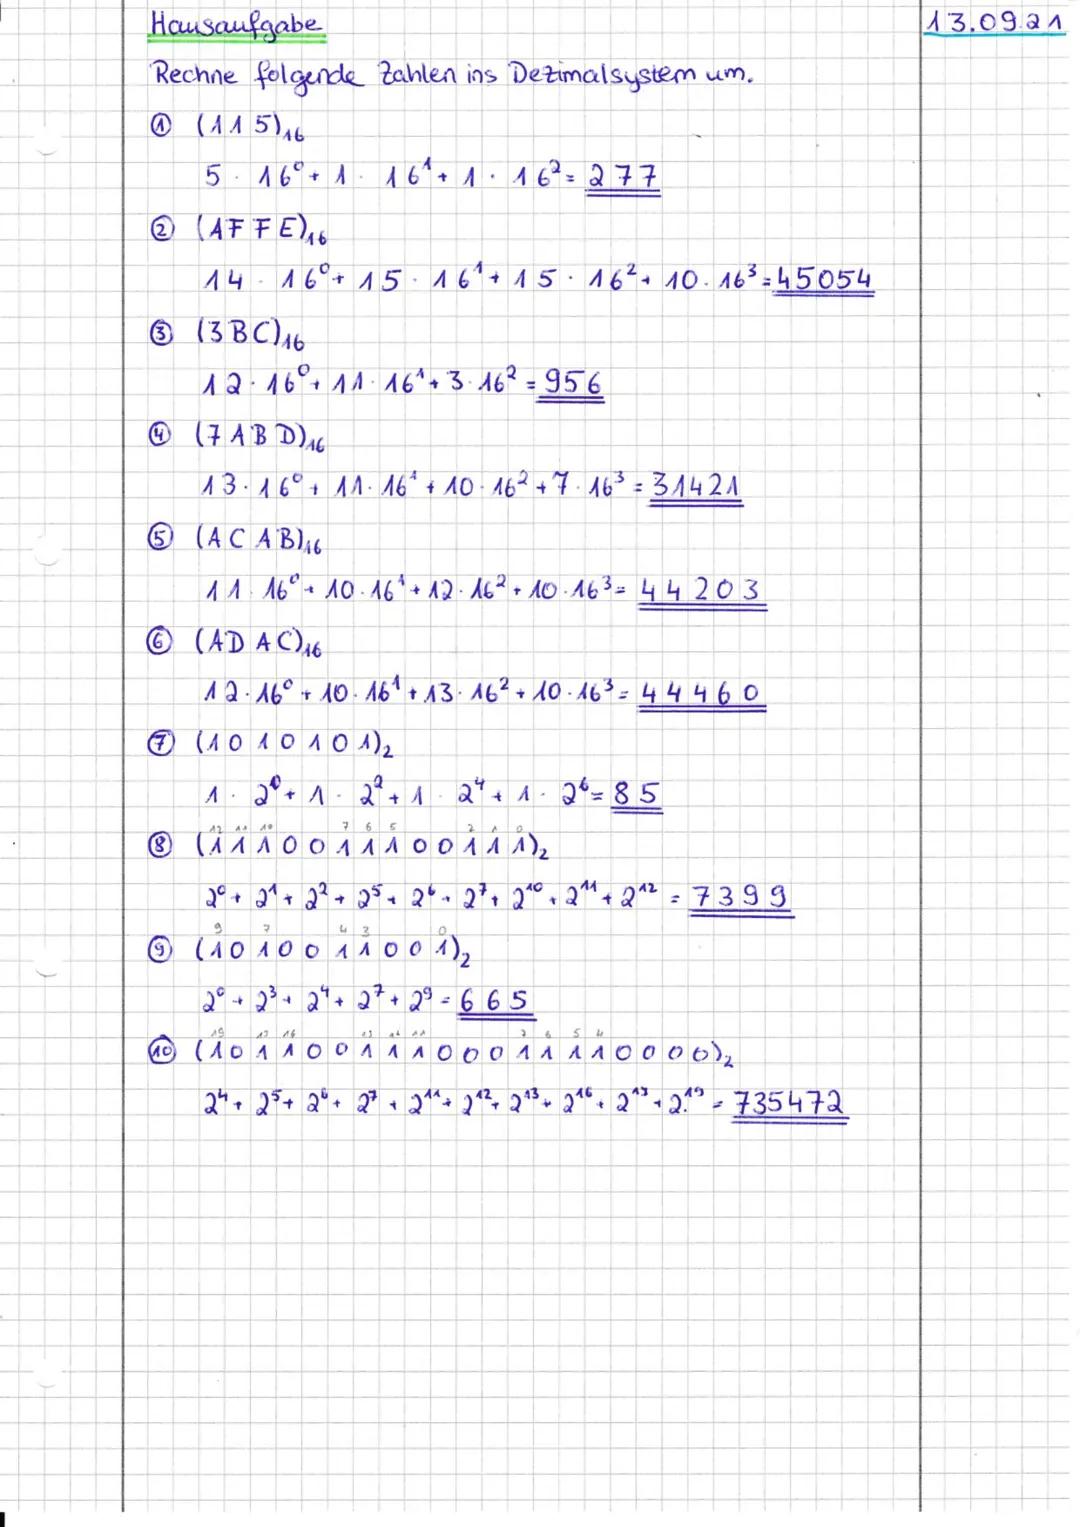 Hausaufgabe 13.09.21
Rechne folgende Zahlen ins Dezimalsystem um.
① (115)₁₆
5 · 16⁰ + 1 · 16¹ + 1 · 16² = 277
② (AFFE)₁₆
14 · 16⁰ + 15 · 16¹ + 15 · 16² + 10 · 16³ = 45054
③ (3BC)₁₆
12 · 16⁰ + 11 · 16¹ + 3 · 16² = 956
④ (7ABD)₁₆
13 · 16⁰ + 11 · 16¹ + 10 · 16² + 7 · 16³ = 31421
⑤ (ACAB)₁₆
11 · 16⁰ + 10 · 16¹ + 12 · 16² + 10 · 16³ = 44203
⑥ (ADAC)₁₆
12 · 16⁰ + 10 · 16¹ + 13 · 16² + 10 · 16³ = 44460
⑦ (1010101)₂
1 · 2⁰ + 1 · 2² + 1 · 2⁴ + 1 · 2⁶ = 85
12 11 10 7 6 5 2 1 0
⑧ (1110011100111)₂
2⁰ + 2¹ + 2² + 2⁵ + 2⁶ + 2⁷ + 2¹⁰ + 2¹¹ + 2¹² = 7399
9 7 4 3 0
⑨ (1010011001)₂
2⁰ + 2³ + 2⁴ + 2⁷ + 2⁹ = 665
19 17 16 13 12 11 7 6 5 4
⑩ (10110011100011110000)₂
2⁴ + 2⁵ + 2⁶ + 2⁷ + 2¹¹ + 2¹² + 2¹³ + 2¹⁶ + 2¹⁷ + 2¹⁹ = 735472